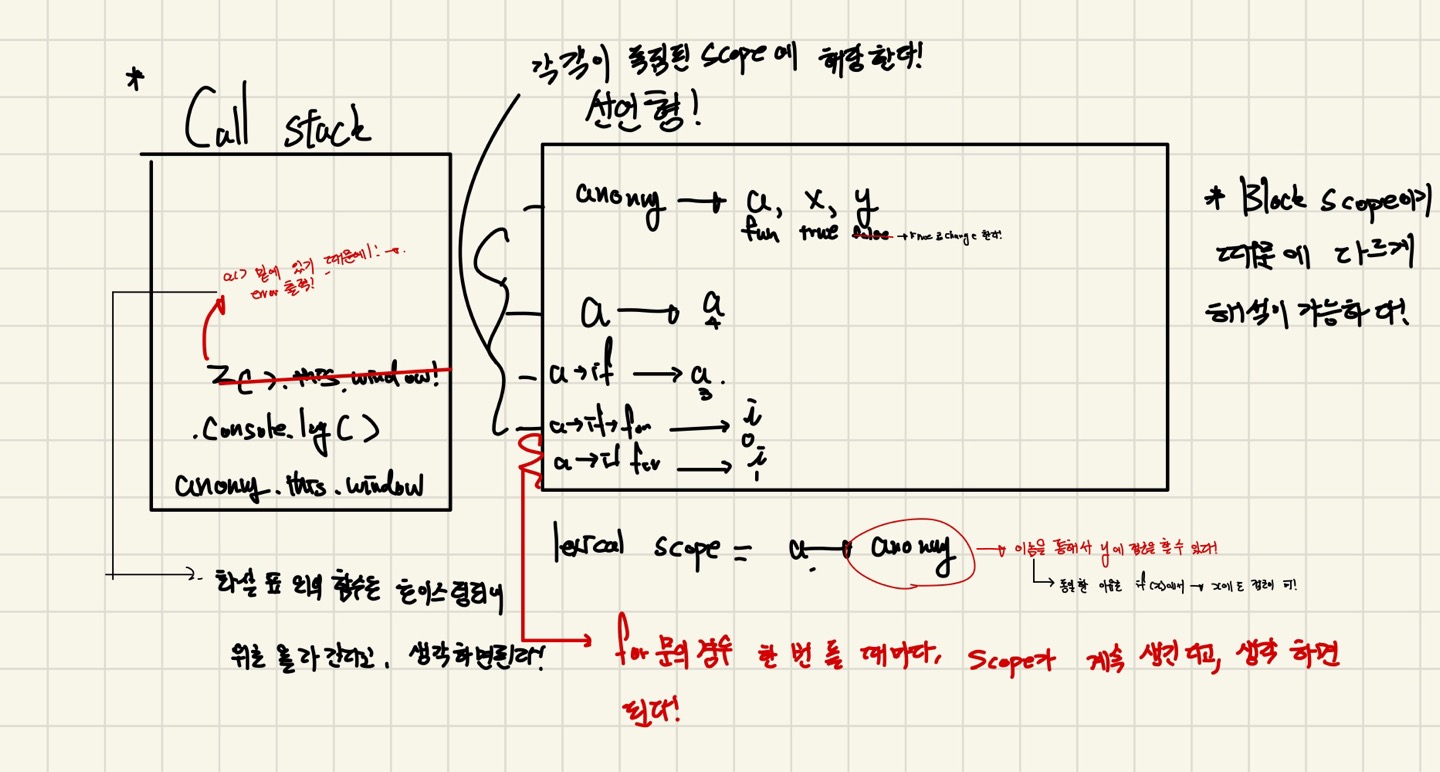 *
Call stack
a() 밑에 있기 때문에! →.
error 출력!
z(). this. window!
.console.log( )
anonuy.this.window
각각이 독립된 scope에 해당한다!
선언형!
anonuy → a, x, y
fun true false → true로 change 한다!
a → a
4
a→if → a.
3
a→if→for → i
0
a→if for → i
1
* Block scope이기
때문에 다르게
해석이 가능하다!
lexical scope = a → anonuy → 이놈을 통해서 y에 접근을 할 수 있다!
↳ 동일한 이유로 if(x)에서 → x에도 접근이 됨!
→ 화살표 외의 함수는 호이스팅되어
위로 올라간다고, 생각하면된다!
→ for 문의 경우 한 번 돌 때마다, scope가 계속 생긴다고, 생각 하면
된다!